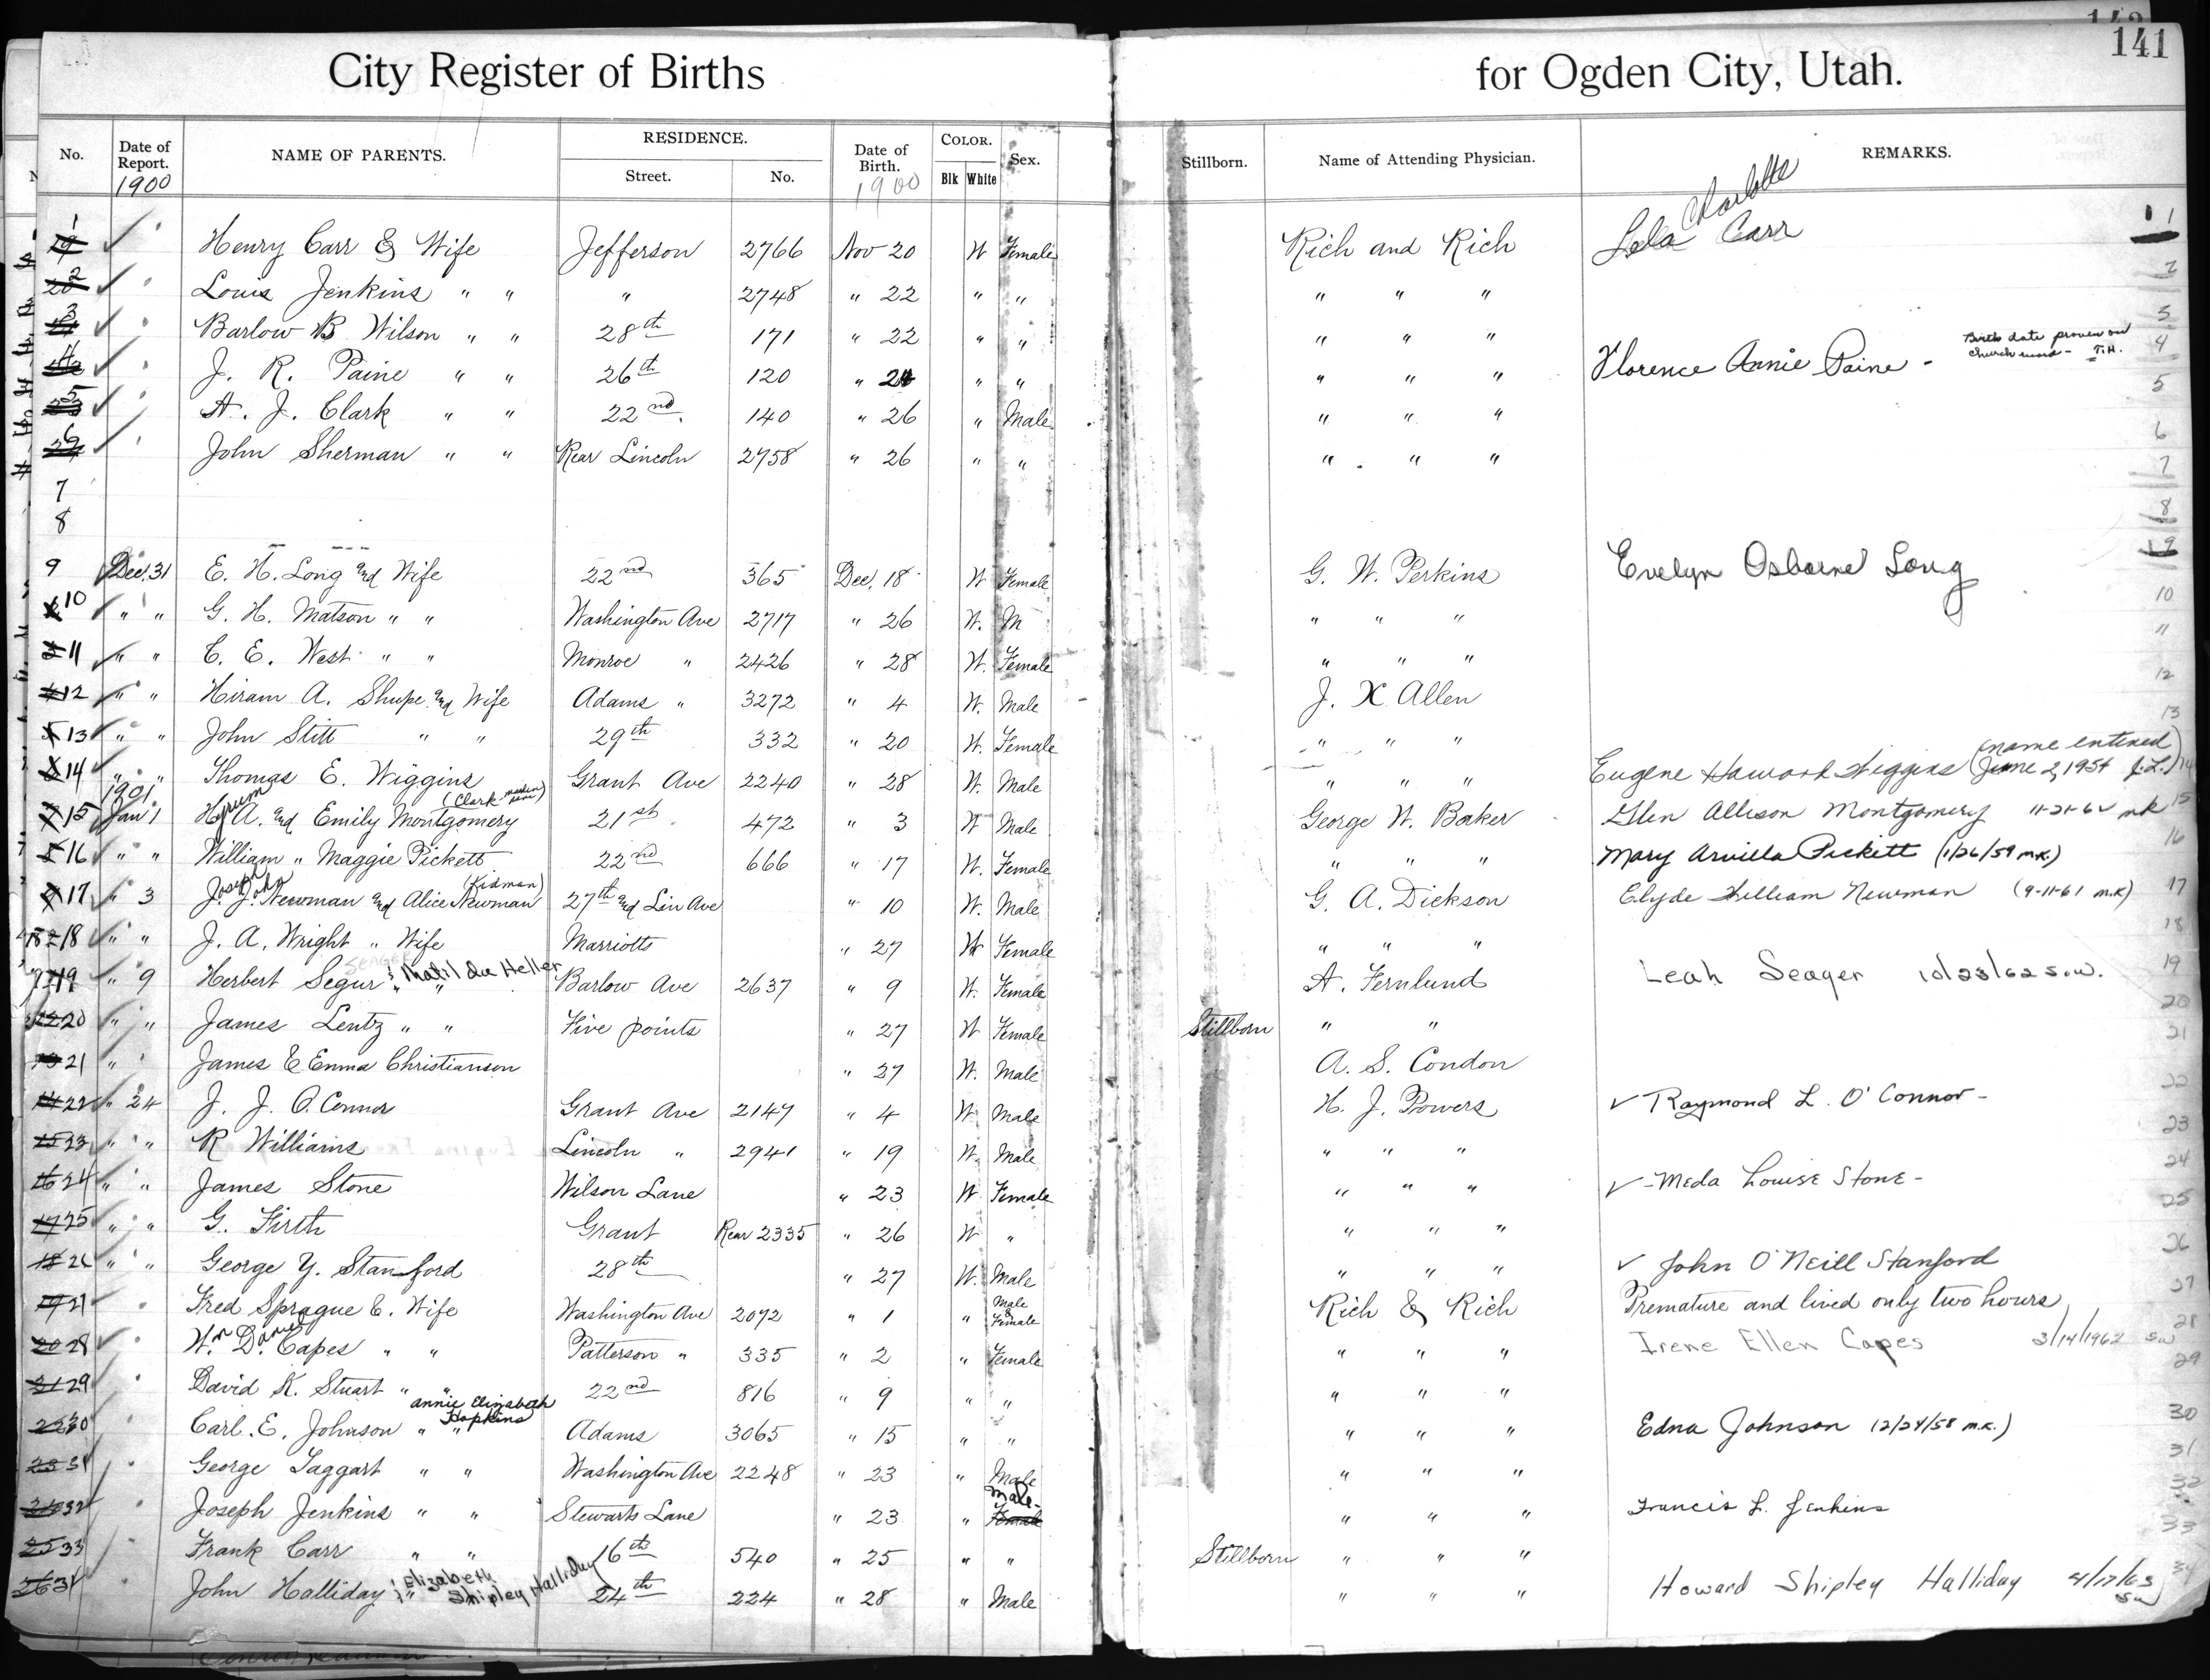 141
City Register of Births for Ogden City, Utah.
No. Date of Report. NAME OF PARENTS. RESIDENCE. Street. No. Date of Birth. COLOR. Blk White Sex. Stillborn. Name of Attending Physician. REMARKS.
1900 1900
1 Henry Carr & Wife Jefferson 2766 Nov 20 W Female Rich and Rich Lela Charlotte Carr 1
2 Louis Jenkins " " " 2748 " 22 " " " " " 2
3 Barlow B Wilson " " 28th 171 " 22 " " " " " 3
4 J. R. Paine " " 26th 120 " 24 " " " " " Florence Annie Paine - Birth date proven on church record - T.H. 4
5 A. J. Clark " " 22nd. 140 " 26 " Male " " " 5
6 John Sherman " " Rear Lincoln 2758 " 26 " " " " " 6
7 7
8 8
9 Dec. 31 E. H. Long and Wife 22nd 365 Dec. 18 W Female G. W. Perkins Evelyn Osborne Long 9
10 " " G. H. Matson " " Washington Ave 2717 " 26 W. M " " " 10
11 " " C. E. West " " Monroe " 2426 " 28 W. Female " " " 11
12 " " Hiram A. Shupe and Wife Adams " 3272 " 4 W. Male J. X Allen 12
13 " " John Stitt " " 29th 332 " 20 W. Female " " " 13
14 " " Thomas E. Wiggins Grant Ave 2240 " 28 W. Male " " " Eugene Howard Wiggins (name entered June 2, 1954 J.L.) 14
1901
15 Jan 1 Hyrum A. and Emily Montgomery (Clark maiden name) 21st 472 " 3 W Male George W. Baker Glen Allison Montgomery 11-21-62 mk 15
16 " " William " Maggie Pickett 22nd 666 " 17 W. Female " " " Mary Arvilla Pickett (1/26/59 m.k.) 16
17 " 3 Joseph John J. J. Newman and Alice Newman (Kidman) 27th and Lin Ave " 10 W. Male G. A. Dickson Clyde William Newman (9-11-61 m.k) 17
18 " " J. A. Wright " Wife Marriotts " 27 W Female " " " 18
19 " 9 Herbert Segur SEAGER " " Matilda Heller Barlow Ave 2637 " 9 W. Female A. Fernlund Leah Seager 10/23/62 S.W. 19
20 " " James Lentz " " Five points " 27 W Female Stillborn " " 20
21 " James & Emma Christianson " 27 W. Male A. S. Condon 21
22 " 24 J. J. O.Connor Grant Ave 2147 " 4 W. Male H. J. Powers ✓ Raymond L. O'Connor - 22
23 " " R Williams Lincoln " 2941 " 19 W. Male " " " 23
24 " " James Stone Wilson Lane " 23 W Female " " " ✓ - Meda Louise Stone - 24
25 " " G. Firth Grant Rear 2335 " 26 W " " " " 25
26 " " George Y. Stanford 28th " 27 W. Male " " " ✓ John O'Neill Stanford 26
27 Fred Sprague & Wife Washington Ave 2072 " 1 " Male & Female Rich & Rich Premature and lived only two hours 27
28 Wm D. Daniel Capes " " Patterson " 335 " 2 " Female " " " Irene Ellen Capes 3/14/1962 SW 28
29 David K. Stuart " " 22nd 816 " 9 " " " " " 29
30 Carl. E. Johnson " " Annie Elizabeth Hopkins Adams 3065 " 15 " " " " " Edna Johnson 12/24/58 m.k.) 30
31 George Taggart " " Washington Ave 2248 " 23 " Male " " " 31
32 Joseph Jenkins " " Stewarts Lane " 23 " Male Female " " " Francis L. Jenkins 32
33 Frank Carr " " 16th 540 " 25 " " Stillborn " " " 33
34 John Halliday " Elizabeth Shipley Halliday 24th 224 " 28 " Male " " " Howard Shipley Halliday 4/17/63 SW 34